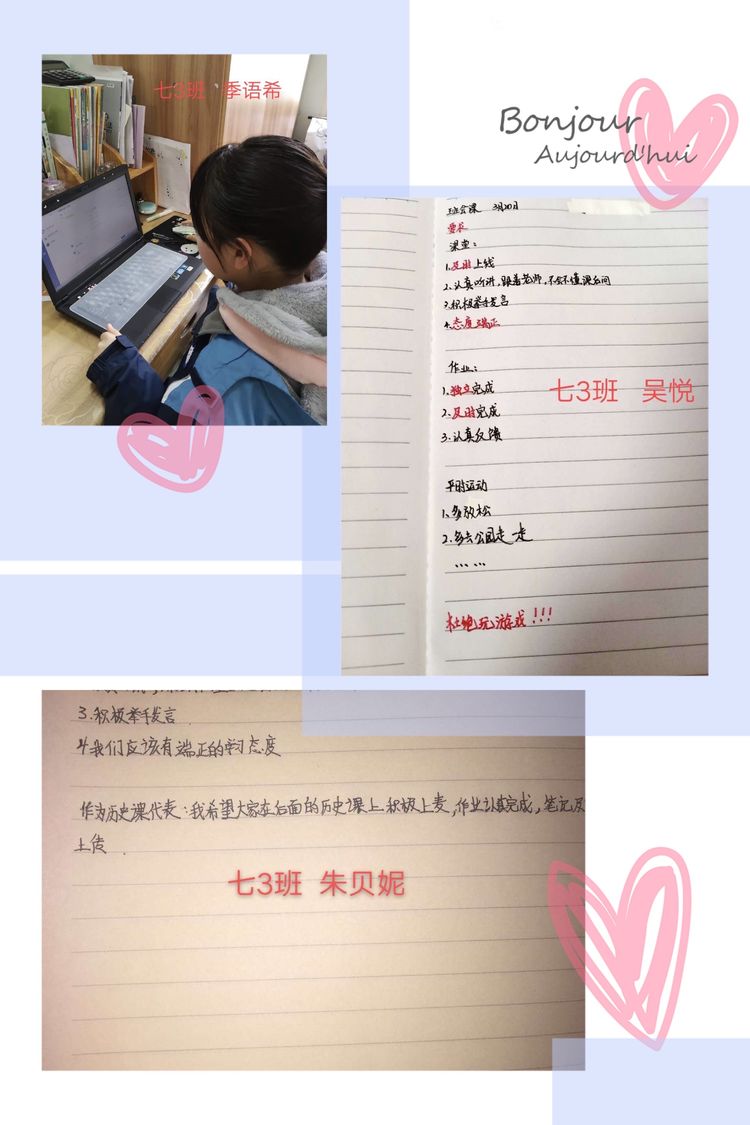 七3班 季语希
Bonjour
Aujourd'hui
班会课 3月20日
要求
课堂：
1.及时上线
2.认真听讲，跟着老师，不会不懂课后问
3.积极举手发言
4.态度端正
作业：
1.独立完成
2.及时完成
3.认真反馈
七3班 吴悦
平时运动
1.多放松
2.多去公园走一走
……
杜绝玩游戏!!!
3.积极举手发言.
4.我们应该有端正的学习态度
作为历史课代表：我希望大家在后面的历史课上积极上麦，作业认真完成，笔记及
上传.
七3班 朱贝妮